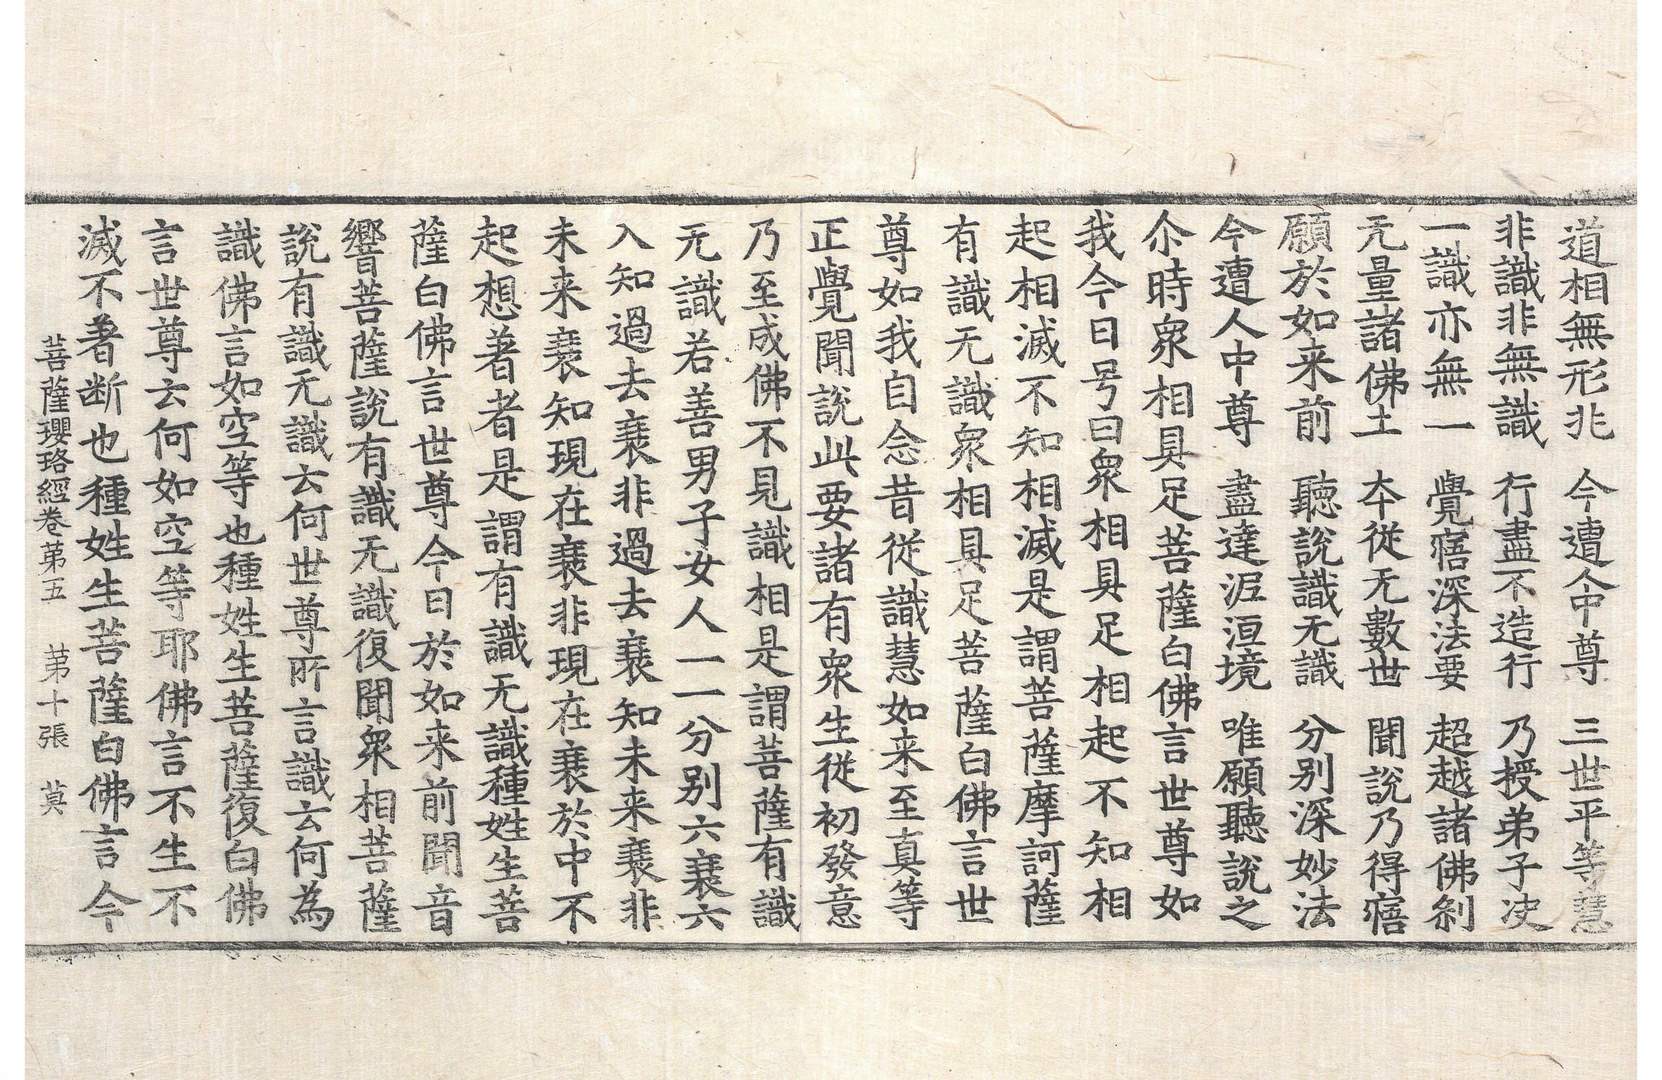 道相無形兆　今遭人中尊　三世平等慧
非識非無識　行盡不造行　乃授弟子决
一識亦無一　覺寤深法要　超越諸佛剎
无量諸佛土　本從无數世　聞說乃得寤
願於如来前　聽說識无識　分别深妙法
今遭人中尊　盡達泥洹境　唯願聽說之
尒時衆相具足菩薩白佛言世尊如
我今日号曰衆相具足相起不知相
起相滅不知相滅是謂菩薩摩訶薩
有識无識衆相具足菩薩白佛言世
尊如我自念昔從識慧如来至真等
正覺聞說此要諸有衆生從初發意
乃至成佛不見識相是謂菩薩有識
无識若善男子女人一一分别六衰六
入知過去衰非過去衰知未来衰非
未来衰知現在衰非現在衰於中不
起想著者是謂有識无識種姓生菩
薩白佛言世尊今日於如来前聞音
響菩薩說有識无識復聞衆相菩薩
說有識无識云何世尊所言識云何為
識佛言如空等也種姓生菩薩復白佛
言世尊云何如空等耶佛言不生不
滅不著断也種姓生菩薩白佛言今
菩薩瓔珞經卷第五　第十張　莫